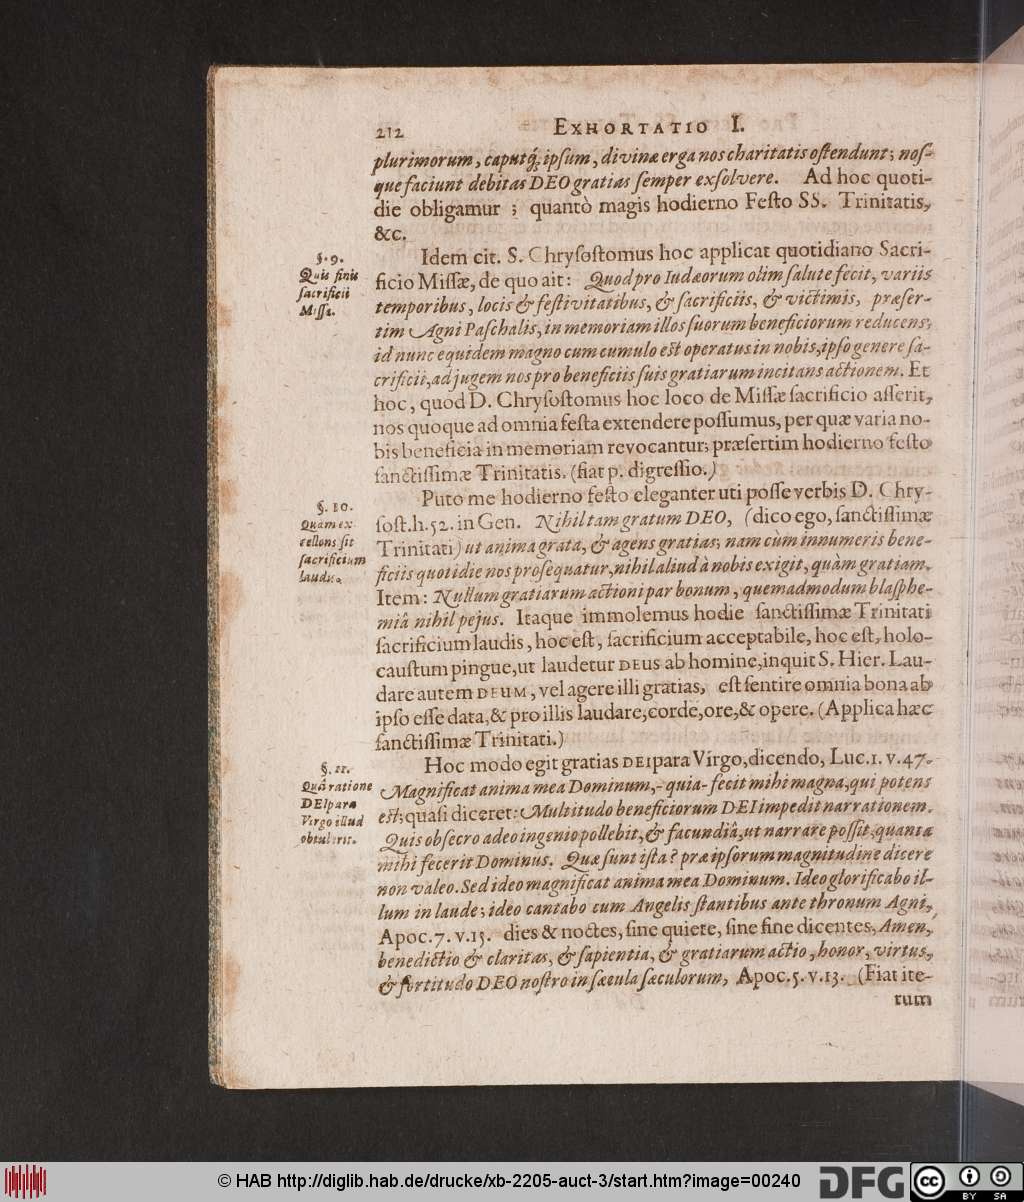 212 EXHORTATIO I.
plurimorum, caputq́; ipsum, divinæ erga nos charitatis ostendunt; nos-
que faciunt debitas DEO gratias semper exsolvere. Ad hoc quoti-
die obligamur; quantò magis hodierno Festo SS. Trinitatis,
&c.
§. 9.
Quis finis
sacrificii
Missæ.
Idem cit. S. Chrysostomus hoc applicat quotidiano Sacri-
ficio Missæ, de quo ait: Quod pro Iudæorum olim salute fecit, variis
temporibus, locis & festivitatibus, & sacrificiis, & victimis, præser-
tim Agni Paschalis, in memoriam illos suorum beneficiorum reducens;
id nunc equidem magno cum cumulo est operatus in nobis, ipso genere sa-
crificii, ad jugem nos pro beneficiis suis gratiarum incitans actionem. Et
hoc, quod D. Chrysostomus hoc loco de Missæ sacrificio asserit,
nos quoque ad omnia festa extendere possumus, per quæ varia no-
bis beneficia in memoriam revocantur; præsertim hodierno festo
sanctissimæ Trinitatis. (fiat p. digressio.)
§. 10.
Quàm ex-
cellens sit
sacrificium
laudis.
Puto me hodierno festo eleganter uti posse verbis D. Chry-
sost. h. 52. in Gen. Nihil tam gratum DEO, (dico ego, sanctissimæ
Trinitati) ut anima grata, & agens gratias; nam cùm innumeris bene-
ficiis quotidie nos prosequatur, nihil aliud à nobis exigit, quàm gratiam.
Item: Nullum gratiarum actioni par bonum, quemadmodum blasphe-
miâ nihil pejus. Itaque immolemus hodie sanctissimæ Trinitati
sacrificium laudis, hoc est, sacrificium acceptabile, hoc est, holo-
caustum pingue, ut laudetur DEUS ab homine, inquit S. Hier. Lau-
dare autem DEUM, vel agere illi gratias, est sentire omnia bona ab
ipso esse data, & pro illis laudare, corde, ore, & opere. (Applica hæc
sanctissimæ Trinitati.)
§. 11.
Quâ ratione
DEIpara
Virgo illud
obtulerit.
Hoc modo egit gratias DEIpara Virgo, dicendo, Luc. 1. v. 47.
Magnificat anima mea Dominum, - quia - fecit mihi magna, qui potens
est; quasi diceret: Multitudo beneficiorum DEI impedit narrationem.
Quis obsecro adeo ingenio pollebit, & facundiâ, ut narrare possit, quanta
mihi fecerit Dominus. Quæ sunt ista? præ ipsorum magnitudine dicere
non valeo. Sed ideo magnificat anima mea Dominum. Ideo glorificabo il-
lum in laude; ideo cantabo cum Angelis stantibus ante thronum Agni,
Apoc. 7. v. 15. dies & noctes, sine quiete, sine fine dicentes, Amen,
benedictio & claritas, & sapientia, & gratiarum actio, honor, virtus,
& fortitudo DEO nostro in sæcula sæculorum, Apoc. 5. v. 13. (Fiat ite-
rum
© HAB http://diglib.hab.de/drucke/xb-2205-auct-3/start.htm?image=00240
DFG
cc
BY SA